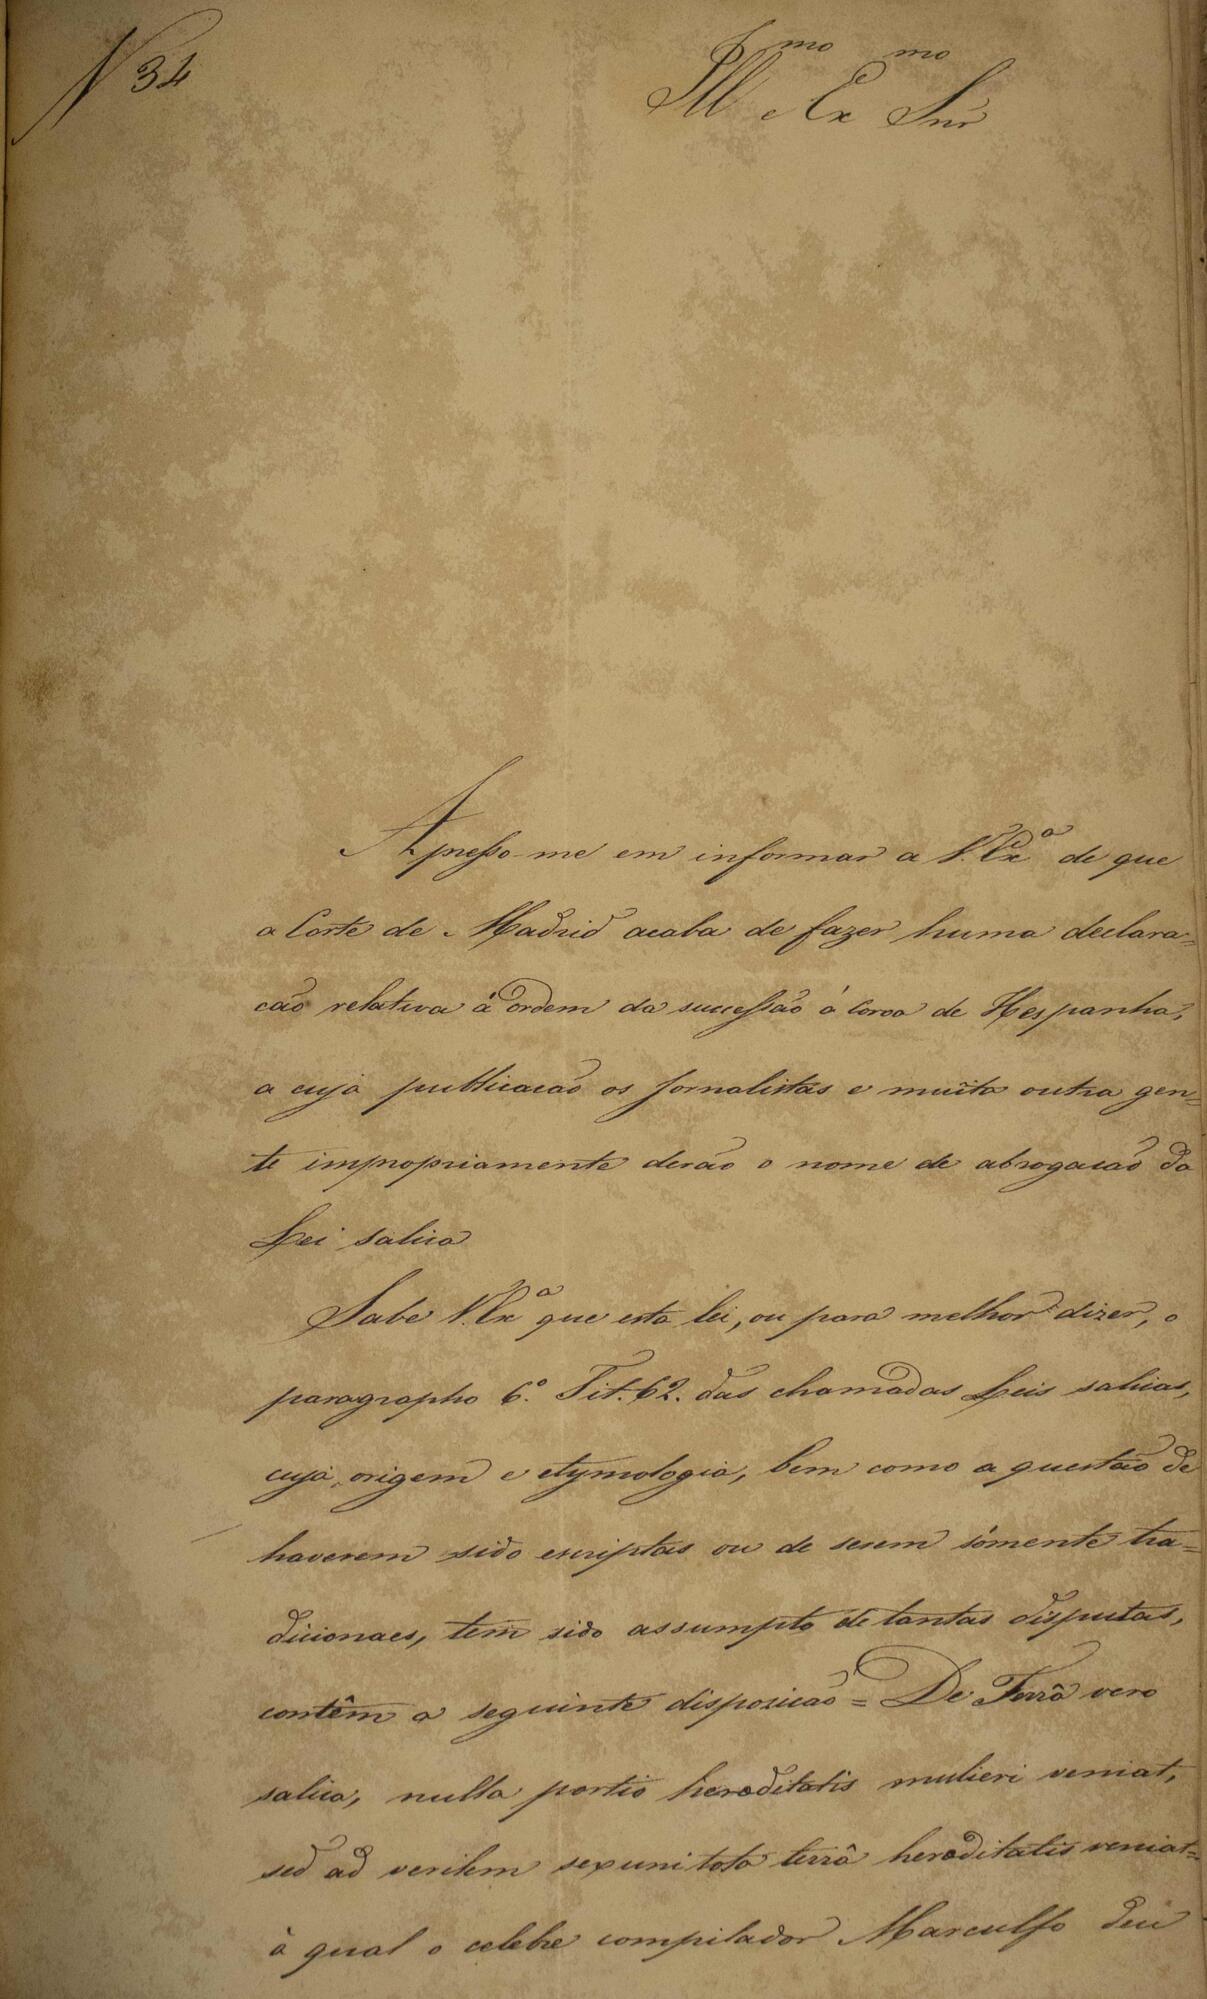 N 34
Ill^mo Ex^mo Snr
Apresso-me em informar a V. Ex^a de que
a Corte de Madrid acaba de fazer huma declara=
cão relativa á ordem da successão á Coroa de Hespanha,
a cuja publicacão os Jornalistas e muita outra gen=
te impropriamente derão o nome de abrogacão da
Lei salica
Sabe V. Ex^a que esta lei, ou para melhor dizer, o
paragrapho 6.º Tit. 62. das chamadas Leis salicas,
cuja origem e etymologia, bem como a questão de
haverem sido escriptas ou de serem sómente tra=
dicionaes, tem sido assumpto de tantas disputas,
contêm a seguinte disposicão = De Terrâ vero
salica, nulla portio hereditatis mulieri veniat,
sed ad verilem sexum tota terrâ hereditatis veniat=
à qual o celebre compilador Marculfo deu